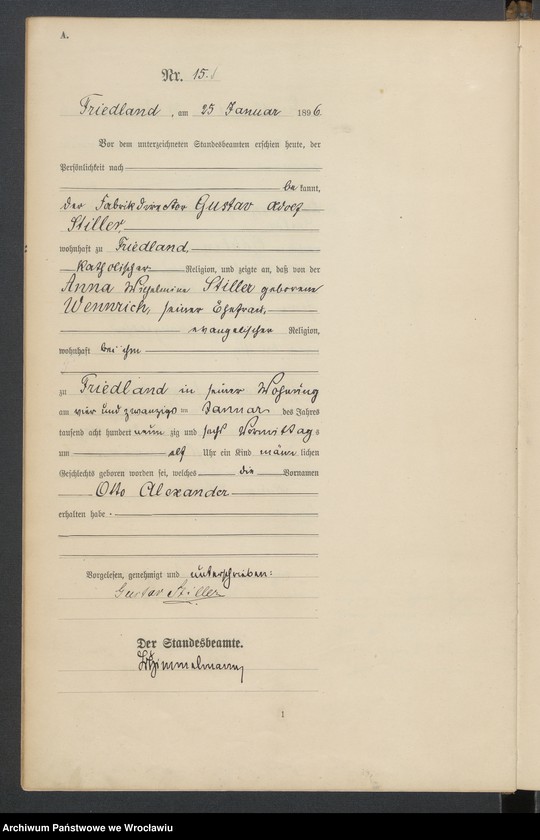 A.
Nr. 15.
Friedland, am 25 Januar 1896.
Vor dem unterzeichneten Standesbeamten erschien heute, der
Persönlichkeit nach
bekannt,
der Fabrikdirector Gustav Adolf
Stiller,
wohnhaft zu Friedland,
katholischer Religion, und zeigte an, daß von der
Anna Wilhelmine Stiller geborenen
Wennrich, seiner Ehefrau,
evangelischer Religion,
wohnhaft bei ihm
zu Friedland in seiner Wohnung
am vier und zwanzigs ten Januar des Jahres
tausend acht hundert neun zig und sechs Vormittags
um elf Uhr ein Kind männlichen
Geschlechts geboren worden sei, welches die Vornamen
Otto Alexander
erhalten habe.
Vorgelesen, genehmigt und unterschrieben:
Gustav Stiller
Der Standesbeamte.
1
Archiwum Państwowe we Wrocławiu